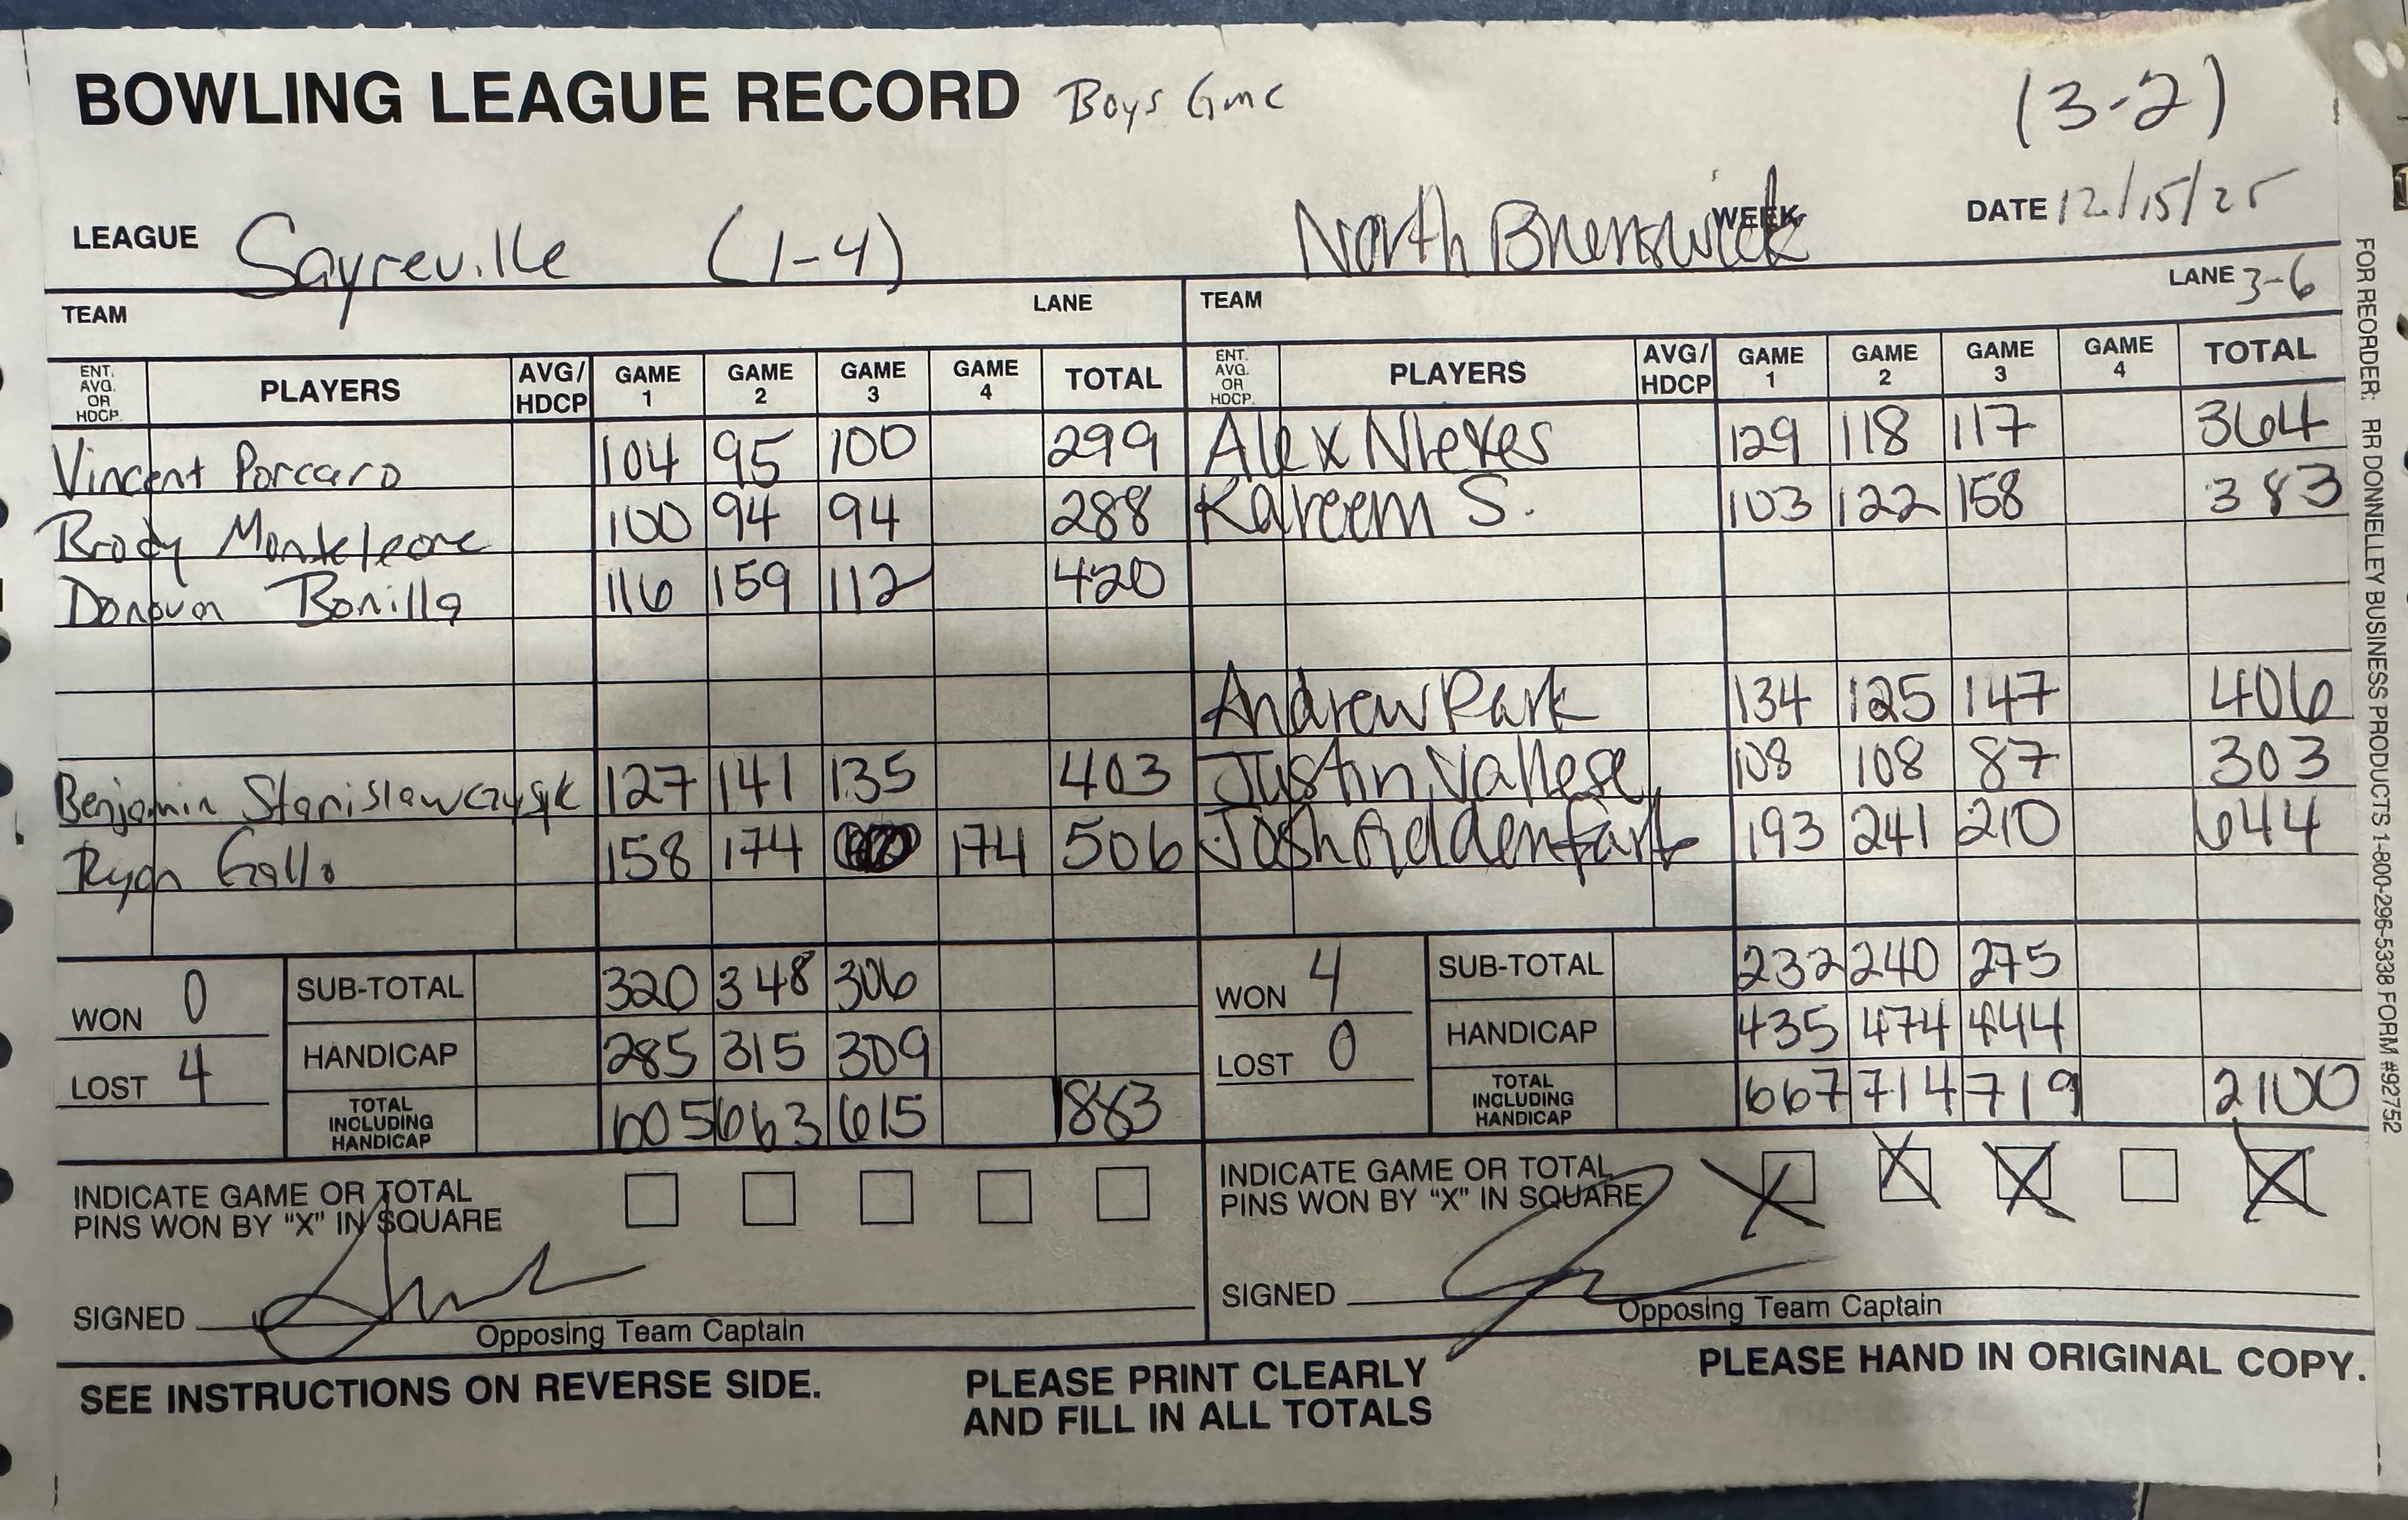 BOWLING LEAGUE RECORD Boys Gmc (3-2)
LEAGUE Sayreville (1-4) North Brunswick WEEK DATE 12/15/25
TEAM LANE TEAM LANE 3-6
ENT. AVG. OR HDCP. PLAYERS AVG/ HDCP GAME 1 GAME 2 GAME 3 GAME 4 TOTAL ENT. AVG. OR HDCP. PLAYERS AVG/ HDCP GAME 1 GAME 2 GAME 3 GAME 4 TOTAL
Vincent Porcaro 104 95 100 299 Alex Nieves 129 118 117 364
Brody Monteleone 100 94 94 288 Kareem S. 103 122 158 383
Donovan Bonilla 116 159 112 420
Andrew Park 134 125 147 406
Benjamin Stanislawczysk 127 141 135 403 Justin Vallese 108 108 87 303
Ryan Gallo 158 174 174 506 Josh 193 241 210 644
WON 0 SUB-TOTAL 320 348 306 WON 4 SUB-TOTAL 232 240 275
LOST 4 HANDICAP 285 315 309 LOST 0 HANDICAP 435 474 444
TOTAL INCLUDING HANDICAP 605 663 615 1883 TOTAL INCLUDING HANDICAP 667 714 719 2100
INDICATE GAME OR TOTAL INDICATE GAME OR TOTAL
PINS WON BY “X” IN SQUARE PINS WON BY “X” IN SQUARE X X X X
SIGNED SIGNED
Opposing Team Captain Opposing Team Captain
SEE INSTRUCTIONS ON REVERSE SIDE. PLEASE PRINT CLEARLY PLEASE HAND IN ORIGINAL COPY.
AND FILL IN ALL TOTALS
FOR REORDER: RR DONNELLEY BUSINESS PRODUCTS 1-800-296-5338 FORM #92752